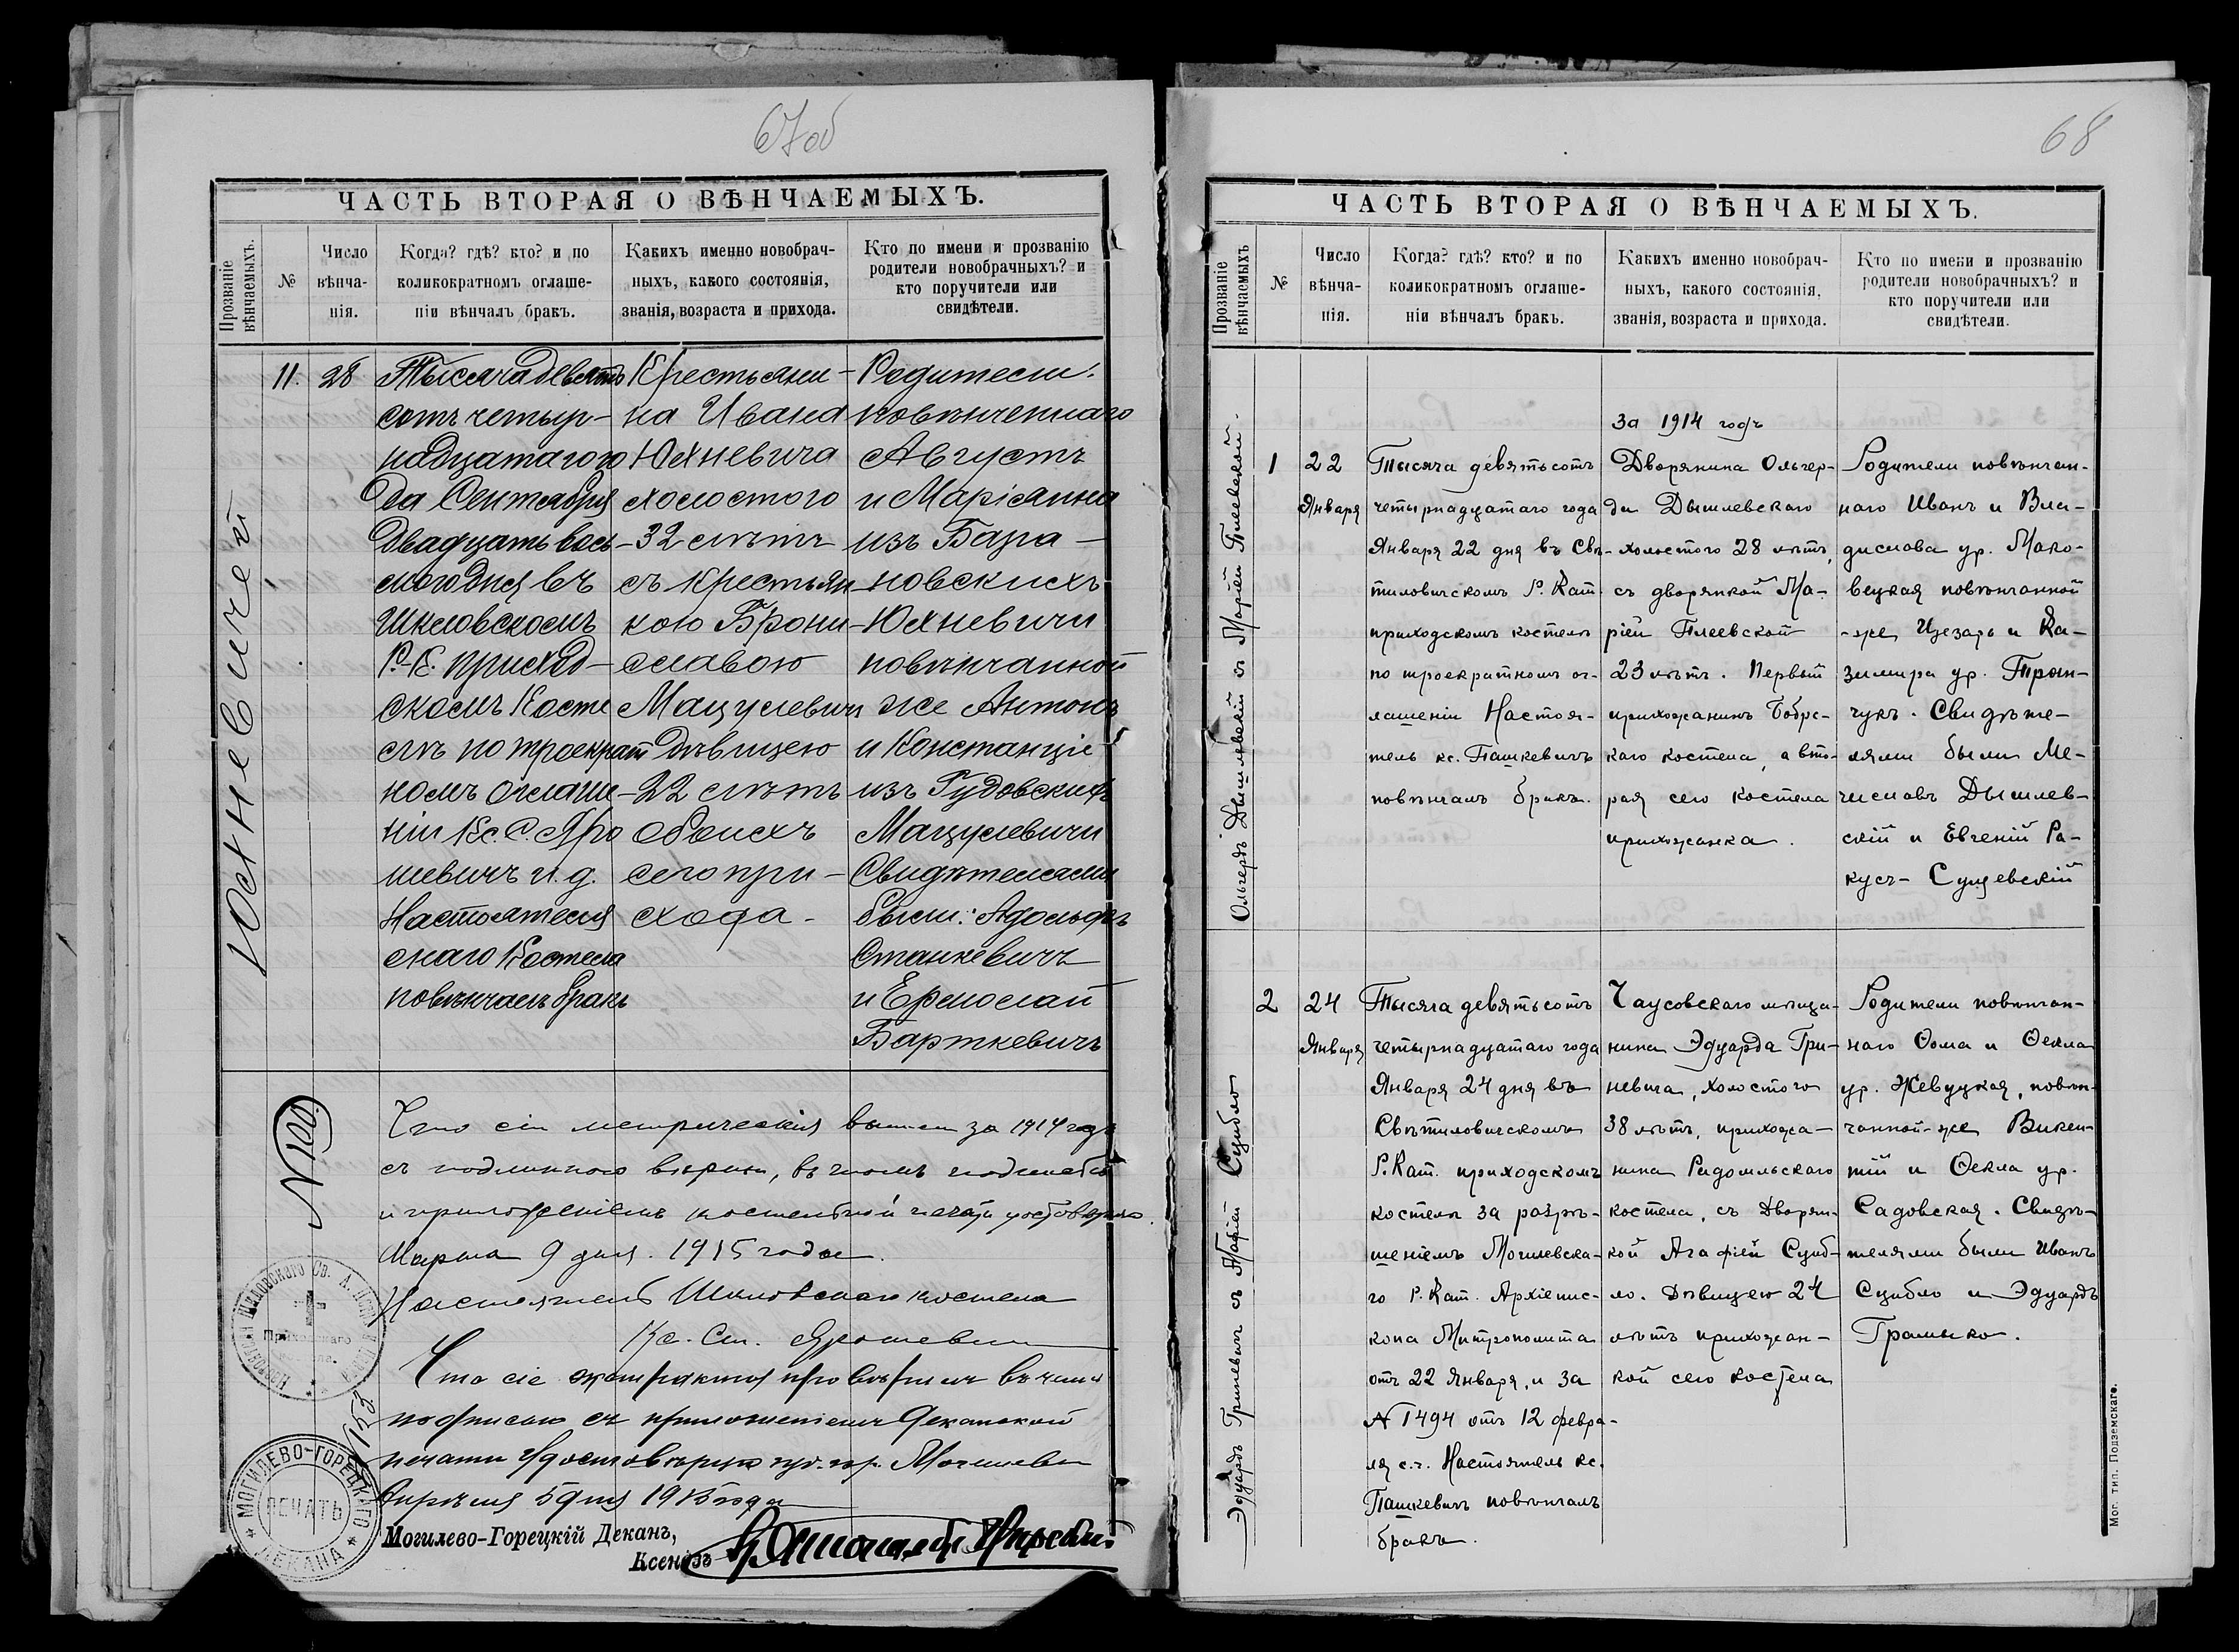 67об
ЧАСТЬ ВТОРАЯ О ВѢНЧАЕМЫХЪ.
Прозваніе вѣнчаемыхъ.
№
Число вѣнча-нія.
Когда? гдѣ? кто? и по
коликократномъ оглаше-
ніи вѣнчалъ бракъ.
Какихъ именно новобрач-
ныхъ, какого состоянія,
званія, возраста и прихода.
Кто по имени и прозванію
родители новобрачныхъ? и
кто поручители или
свидѣтели.
Юхневичей
11.
28
Тысяча девять
сотъ четыр-
надцатаго го
да Сентября
двадцать вось-
мого дня въ
Шкловскомъ
Р.-К. приход-
скомъ Косте
лѣ по троекрат
номъ оглаше-
ніи Кс. С. Яро
шевичъ и. д.
Настоятеля
онаго Костела
повѣнчалъ бракъ
Крестьяни-
на Ивана
Юхневича
холостого
32 лѣтъ
съ крестьян-
кою Брони-
славою
Мацулевичъ
дѣвицею
22 лѣтъ
обоихъ
сего при-
хода.
Родители
повѣнченнаго
Августъ
и Маріанна
изъ Бара-
новскихъ
Юхневичи
повѣнчанной
же Антонъ
и Констанція
изъ Гудовскихъ
Мацулевичи
Свидѣтелями
были: Адольфъ
Станкевичъ
и Ермолай
Барткевичъ
N 100.
Что сіи метрическія выписи за 1914 годъ
съ подлинною вѣрны, въ томъ подписью
и приложеніемъ костельной печати удостовѣряю.
Марта 9 дня. 1915 года.
Настоятель Шкловскаго костела
Кс. Ст. Ярошевичъ
Что сіе экстрактъ провѣрилъ въ чемъ
подписью съ приложеніемъ Деканской
печати Удостовѣряю губ. гор. Могилевъ
Апрѣля 5 дня 1915 года
Могилево-Горецкій Деканъ,
Ксендзъ
МОГИЛЕВО-ГОРЕЦКАГО ДЕКАНА
ПЕЧАТЬ
68
ЧАСТЬ ВТОРАЯ О ВѢНЧАЕМЫХЪ.
Прозваніе вѣнчаемыхъ
№
Число вѣнча-нія.
Когда? гдѣ? кто? и по
коликократномъ оглаше-
ніи вѣнчалъ бракъ.
Какихъ именно новобрач-
ныхъ, какого состоянія,
званія, возраста и прихода.
Кто по имени и прозванію
родители новобрачныхъ? и
кто поручители или
свидѣтели.
За 1914 годъ
Ольгердъ Дышлевскій съ Маріей Плеевской.
1
22
Января
Тысяча девятьсотъ
четырнадцатаго года
Января 22 дня въ Свѣ-
тиловичскомъ Р. Кат.
приходскомъ костелѣ
по троекратномъ ог-
лашеніи Настоя-
тель кс. Пашкевичъ
повѣнчалъ бракъ.
Дворянина Ольгер-
да Дышлевскаго
холостого 28 лѣтъ,
съ дворянкой Ма-
ріей Плеевской
23 лѣтъ. Первый
прихожанинъ Бобрс-
каго костела, а вто-
рая сего костела
прихожанка.
Родители повѣнчан-
наго Иванъ и Вла-
дислава ур. Мако-
вецкая повѣнчанной
-же, Цезарь и Ка-
зимира ур. Трон-
чукъ. Свидѣте-
лями были Ме-
числавъ Дышлев-
скій и Евгеній Ра-
кусъ-Сущевскій
Эдуардъ Гриневичъ съ Агафіей Сцибло
2
24
Января
Тысяча девятьсотъ
четырнадцатаго года
Января 24 дня въ
Свѣтиловичскомъ
Р. Кат. приходскомъ
костелѣ за разрѣ-
шеніемъ Могилевска-
го Р. Кат. Архіепис-
копа Митрополита
отъ 22 Января, и за
N 1494 отъ 12 февра-
ля с.г. Настоятель кс.
Пашкевичъ повѣнчалъ
бракъ.
Чаусовскаго мѣща-
нина Эдуарда Гри-
невича, холостого
38 лѣтъ, прихожа-
нина Радомльскаго
костела, съ Дворян-
кой Агафіей Сциб-
ло. Дѣвицею 24
лѣтъ прихожан-
кой сего костела
Родители повѣнчан-
наго Ѳома и Ѳекла
ур. Жевуцкая, повѣн-
чанной-же Викен-
тій и Ѳекла ур.
Садовская. Свидѣ-
телями были Иванъ
Сцибло и Эдуардъ
Громыко.
Мог. тип. Подземскаго.